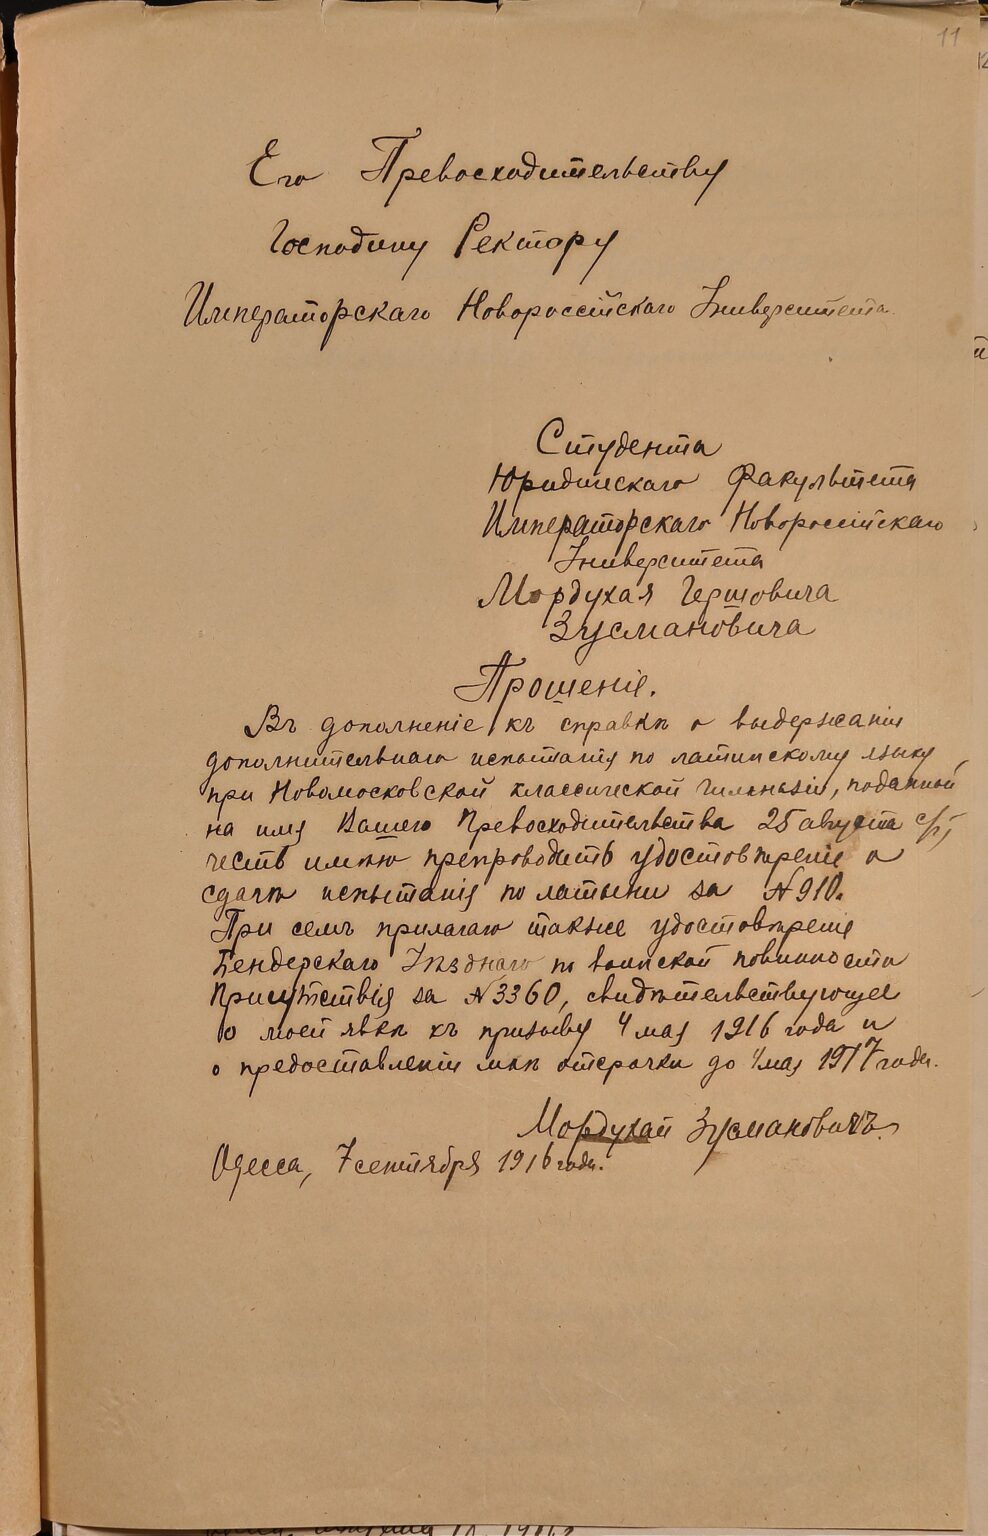 11
Его Превосходительству
Господину Ректору
Императорскаго Новороссійскаго Университета
Студента
Юридическаго Факультета
Императорскаго Новороссійскаго
Университета
Мордухая Гершовича
Зусмановича
Прошеніе.
Въ дополненіе къ справкѣ о выдержаніи
дополнительнаго испытанія по латинскому языку
при Новомосковской классической гимназіи, поданной
на имя Вашего Превосходительства 25 августа с/г,
честь имѣю препроводить удостовѣреніе о
сдачѣ испытанія по латыни за № 910.
При семъ прилагаю также удостовѣреніе
Бендерскаго Уѣзднаго по воинской повинности
Присутствія за № 3360, свидѣтельствующее
о моей явкѣ къ призыву 4 мая 1916 года и
о предоставленіи мнѣ отсрочки до 4 мая 1917 года.
Мордухай Зусмановичъ.
Одесса, 7 сентября 1916 года.